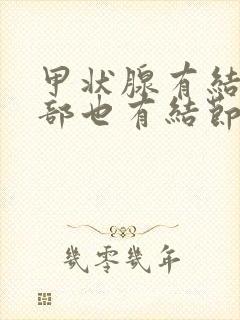 甲状腺有結
部也有結節
幾零幾年